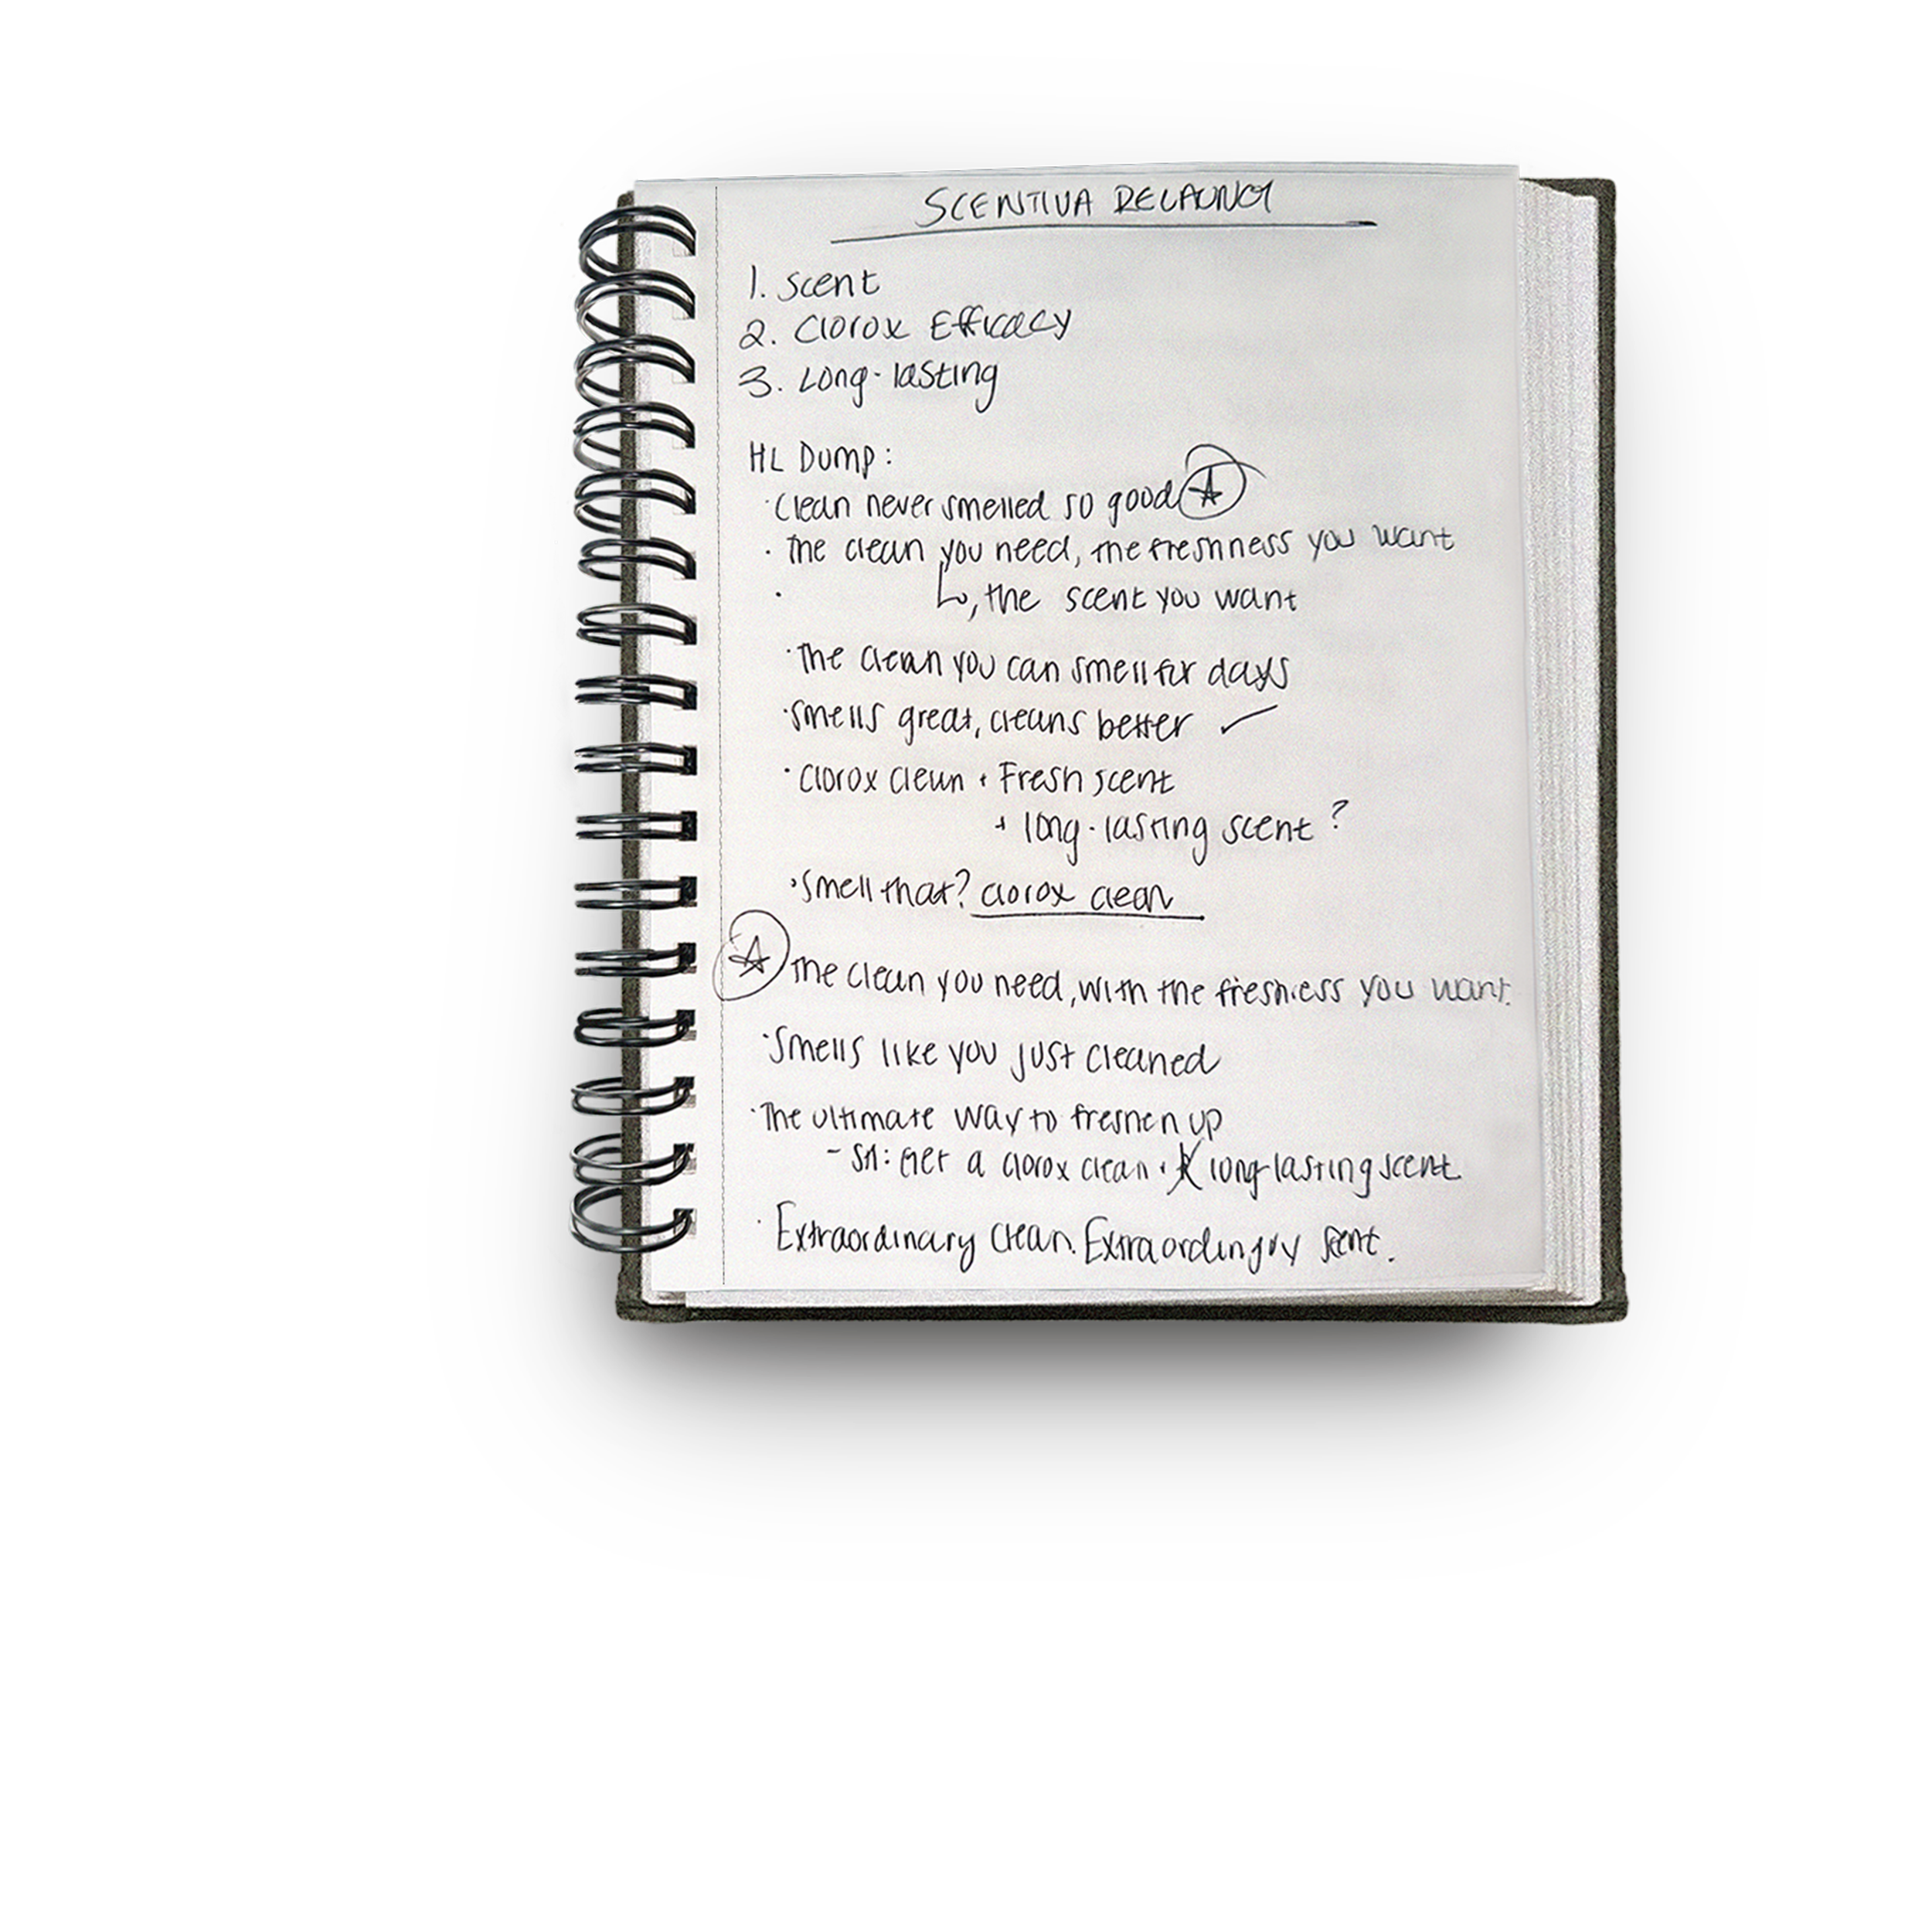 SCENTIVA RELAUNCH
1. Scent
2. Clorox Efficacy
3. Long-lasting
HL Dump:
· Clean never smelled so good
· The clean you need, the freshness you want
· ↳, the scent you want
· The clean you can smell for days
· Smells great, cleans better ✓
· Clorox clean + Fresh scent
+ long-lasting scent?
· Smell that? Clorox clean
The clean you need, with the freshness you want.
· Smells like you just cleaned
· The ultimate way to freshen up
- SH: Get a Clorox clean + long-lasting scent
· Extraordinary clean. Extraordinary scent.